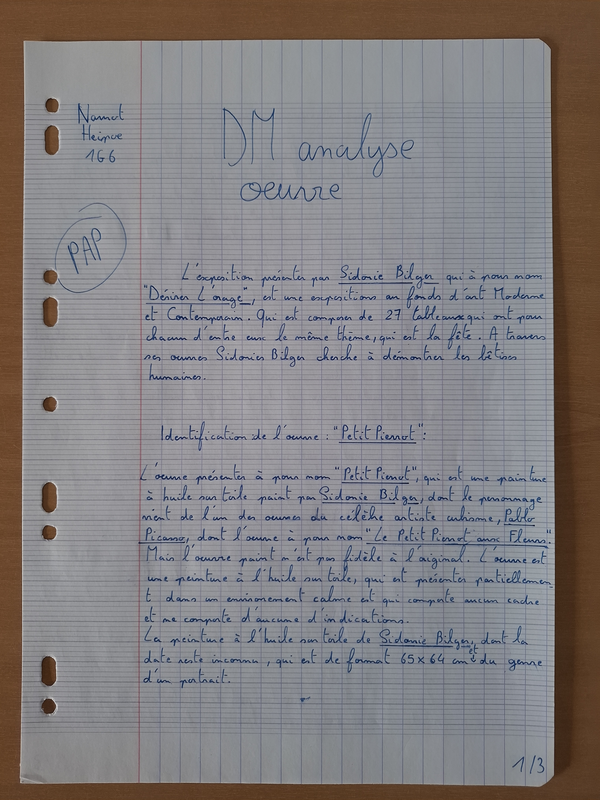 Namot
1G6
PAP
DM analyse
oeuvre
L'exposition présenter par Sidonie Bilger qui à pour nom
"Désirer L'orage", est une expositions au fonds d'art Moderne
et Contemporain. Qui est composer de 27 tableaux qui ont pour
chacun d'entre eux le même thème, qui est la fête. A travers
ses oeuvres Sidonies Bilger cherche à démontrer les bêtises
humaines.
Identification de l'œuvre : "Petit Pierrot" :
L'œuvre présenter à pour nom "Petit Pierrot", qui est une painture
à huile sur toile paint par Sidonie Bilger, dont le personnage
vient de l'un des œuvres du célèbre artiste cubisme, Pablo
Picasso, dont l'œuvre à pour nom "Le Petit Pierrot aux Fleurs".
Mais l'œuvre paint n'est pas fidèle à l'original. L'œuvre est
une peinture à l'huile sur toile, qui est présenter partiellemen
t dans un environement calme est qui comporte aucun cadre
et ne comporte d'aucune d'indications.
La peinture à l'huile sur toile de Sidonie Bilger, dont la
date reste inconnu, qui est de format 65x64 cm et du genre
d'un portrait.
1/3